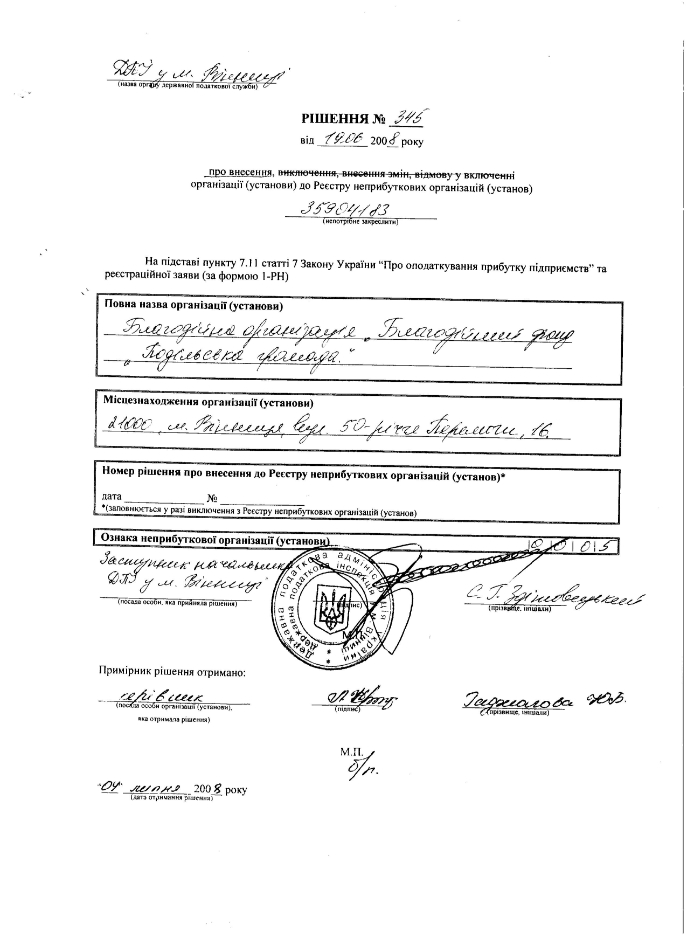 ДПІ у м. Вінниці
(назва органу державної податкової служби)
РІШЕННЯ № 345
від 19.06 2008 року
про внесення, виключення, внесення змін, відмову у включенні
організації (установи) до Реєстру неприбуткових організацій (установ)
35904183
(непотрібне закреслити)
На підставі пункту 7.11 статті 7 Закону України “Про оподаткування прибутку підприємств” та
реєстраційної заяви (за формою 1-РН)
Повна назва організації (установи)
Благодійна організація „Благодійний фонд
„Подільська громада.“
Місцезнаходження організації (установи)
21000, м. Вінниця, вул. 50-річчя Перемоги, 16.
Номер рішення про внесення до Реєстру неприбуткових організацій (установ)*
дата № 
*(заповнюється у разі виключення з Реєстру неприбуткових організацій (установ)
Ознака неприбуткової організації (установи) 0 0 0 5
Заступник начальника
ДПІ у м. Вінниці
С. Г.
(посада особи, яка прийняла рішення) (підпис) (прізвище, ініціали)
Державна податкова адміністрація України
Державна податкова інспекція у м. Вінниці
М.П.
Примірник рішення отримано:
керівник Ю.В.
(посада особи організації (установи), (підпис) (прізвище, ініціали)
яка отримала рішення)
М.П.
б/п.
"04" липня 2008 року
(дата отримання рішення)